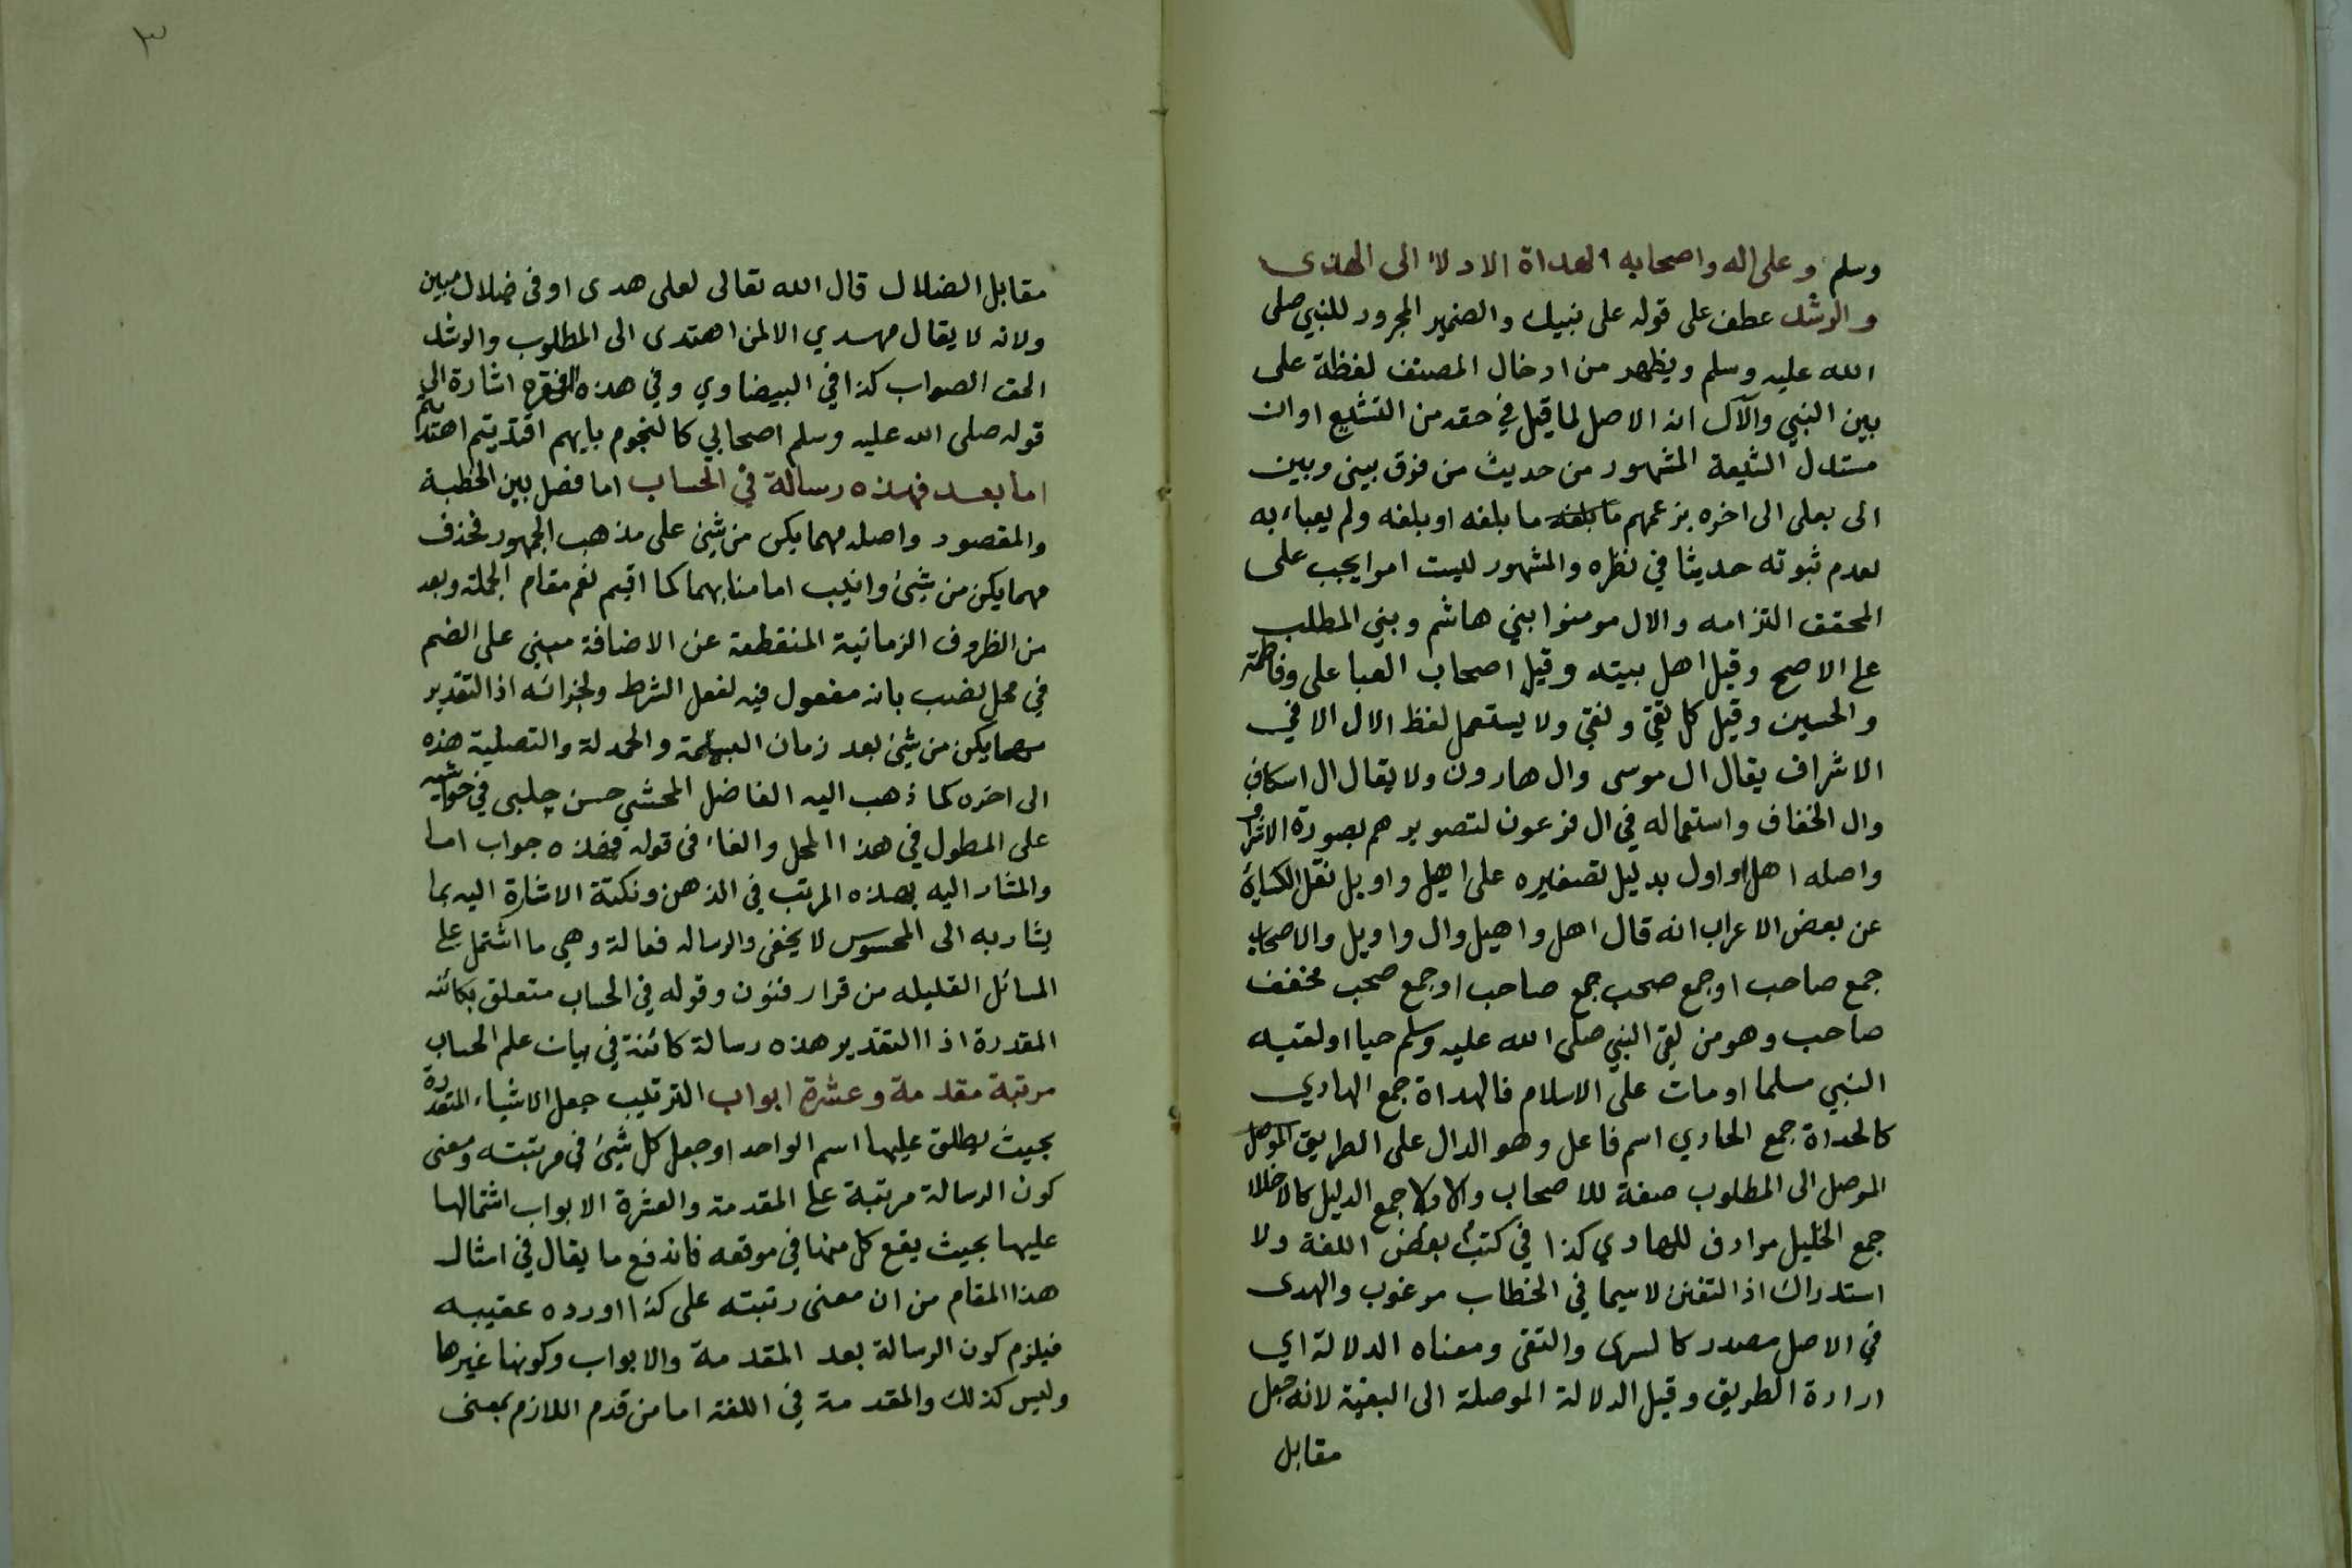 وسلم وعلى اله واصحابه الهداة الادلا الى الهدى
والرشد عطف على قوله على نبيك والضمير المجرور للنبي صلى
الله عليه وسلم ويظهر من ادخال المصنف لفظة على
بين النبي والآل انه الاصل لما قيل في حقه من التشيع اوان
مستدل الشيعة المشهور من حديث من فرق بيني وبين
الى بعلى الى اخره بزعمهم ما بلغه ما بلغه او بلغه ولم يعباء به
لعدم ثبوته حديثا في نظره والمشهور ليست امرا يجب على
المحقق التزامه والال مومنوا بني هاشم وبني المطلب
على الاصح وقيل اهل بيته وقيل اصحاب العبا على وفاطمة
والحسين وقيل كل تقي ونقي ولا يستعمل لفظ الال الا في
الاشراف يقال ال موسى وال هارون ولا يقال ال اسكاف
وال الخفاف واستعماله في ال فرعون لتصويرهم بصورة الاشراف
واصله اهل او اول بدليل تصغيره على اهيل واويل نقل الكسائي
عن بعض الاعراب انه قال اهل واهيل وال واويل والاصحاب
جمع صاحب او جمع صحب جمع صاحب او جمع صحب مخفف
صاحب وهو من لقي النبي صلى الله عليه وسلم حيا او لقيه
النبي مسلما او مات على الاسلام فالهداة جمع الهادي
كالحداة جمع الحادي اسم فاعل وهو الدال على الطريق الموصل
الموصل الى المطلوب صفة للاصحاب والادلا جمع الدليل كالاخلا
جمع الخليل مرادف للهادي كذا في كتب بعض اللغة ولا
استدراك اذ التفنن لاسيما في الخطاب مرغوب والهدى
في الاصل مصدر كالسرى والتقى ومعناه الدلالة اي
ارادة الطريق وقيل الدلالة الموصلة الى البغية لانه جعل
مقابل
٣
مقابل الضلال قال الله تعالى لعلى هدى او في ضلال مبين
ولانه لا يقال مهدي الا لمن اهتدى الى المطلوب والرشد
الحق الصواب كذا في البيضاوي وفي هذه الفقره اشارة الى
قوله صلى الله عليه وسلم اصحابي كالنجوم بايهم اقتديتم اهتديتم
اما بعد فهذه رسالة في الحساب اما فصل بين الخطبة
والمقصود واصله مهما يكن من شيئ على مذهب الجمهور فحذف
مهما يكن من شيئ وانيب اما منابهما كما اقيم نعم مقام الجملة وبعد
من الظروف الزمانية المنقطعة عن الاضافة مبني على الضم
في محل نصب بانه مفعول فيه لفعل الشرط ولجزائه اذ التقدير
مهما يكن من شيئ بعد زمان البسملة والحمدلة والتصلية هذه
الى اخره كما ذهب اليه الفاضل المحشي حسن چلبى في حواشيه
على المطول في هذا المحل والفاء في قوله فهذه جواب اما
والمشار اليه بهذه المرتب في الذهن ونكتة الاشارة اليه بما
يشار به الى المحسوس لا يخفى والرساله فعالة وهي ما اشتمل على
المسائل القليله من قرار فنون وقوله في الحساب متعلق بكائنة
المقدرة اذا التقدير هذه رسالة كائنة في بيان علم الحساب
مرتبة مقدمة وعشرة ابواب الترتيب جعل الاشياء المتعددة
بحيث يطلق عليها اسم الواحد او جعل كل شيئ في مرتبته ومعنى
كون الرسالة مرتبة على المقدمة والعشرة الابواب اشتمالها
عليها بحيث يقع كل منها في موقعه فاندفع ما يقال في امثال
هذا المقام من ان معنى رتبته على كذا اورده عقيبه
فيلزم كون الرسالة بعد المقدمة والابواب وكونها غيرها
وليس كذلك والمقدمة في اللغة اما من قدم اللازم بمعنى